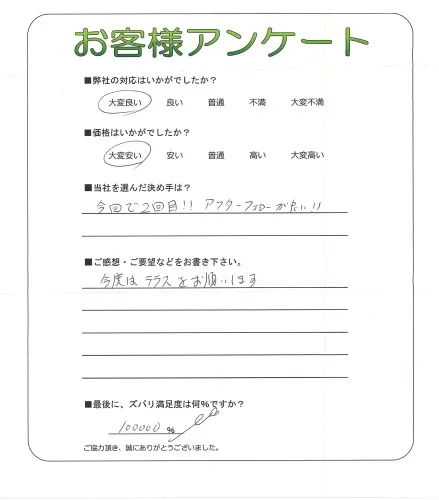 お客様アンケート
■弊社の対応はいかがでしたか？
大変良い 良い 普通 不満 大変不満
■価格はいかがでしたか？
大変安い 安い 普通 高い 大変高い
■当社を選んだ決め手は？
今回で2回目!! アフターフォローが
■ご感想・ご要望などをお書き下さい。
今度は テラスをお願いします
■最後に、ズバリ満足度は何%ですか？
100000 %
ご協力頂き、誠にありがとうございました。